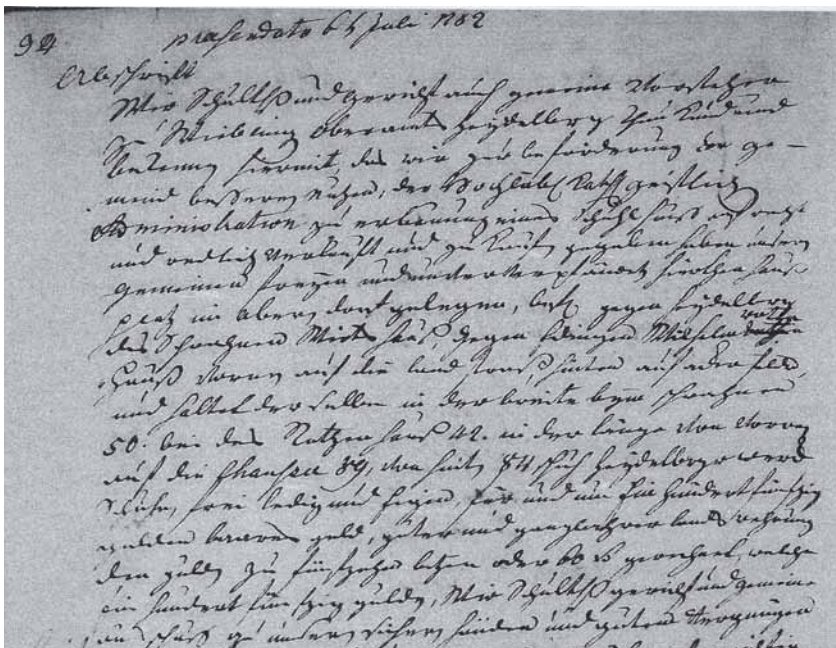 94 præsendato 6t Juli 1782
Abschrift
Wir Schultß und gericht auch gemeine Vorstehere
zu Wieblingen Oberamts Heydelberg Thun Kund und
bekennen hiermit, das wir zur beförderung der ge-
meind besseren nuzen, der Hochlöbl. Kath geistlich
Administration zu erbauung eines Schuhl hauß
und redlich verkauft und zu kaufen gegeben haben unsern
gemeinen freyen und hauß
platz im obern dorf gelegen, gegen Heydelberg
das Schwahnen Wirts hauß, gegen Edingen Wilhelm
hauß vornen auf die land straß hinten auf ackerfeld,
und haltet derselbe in der breite beym schwahnen
50. bei des Ratzen hauß 42. in der länge von vornen
auf die Chaussee 89, von hinten 84 schuh Heydelberger werck
Schuhe, frei ledig und eigen, für und um Ein hundert fünfzig
gulden baares geld, guter und gangbahrer lands wehrung
den gulden zu fünfzehn batzen oder 60 x gerechnet, welche
ein hundert fünfzig gulden, Wir Schultß gericht und gemeine
ausschuß zu unsern sichern händen und gutem Vergnügen